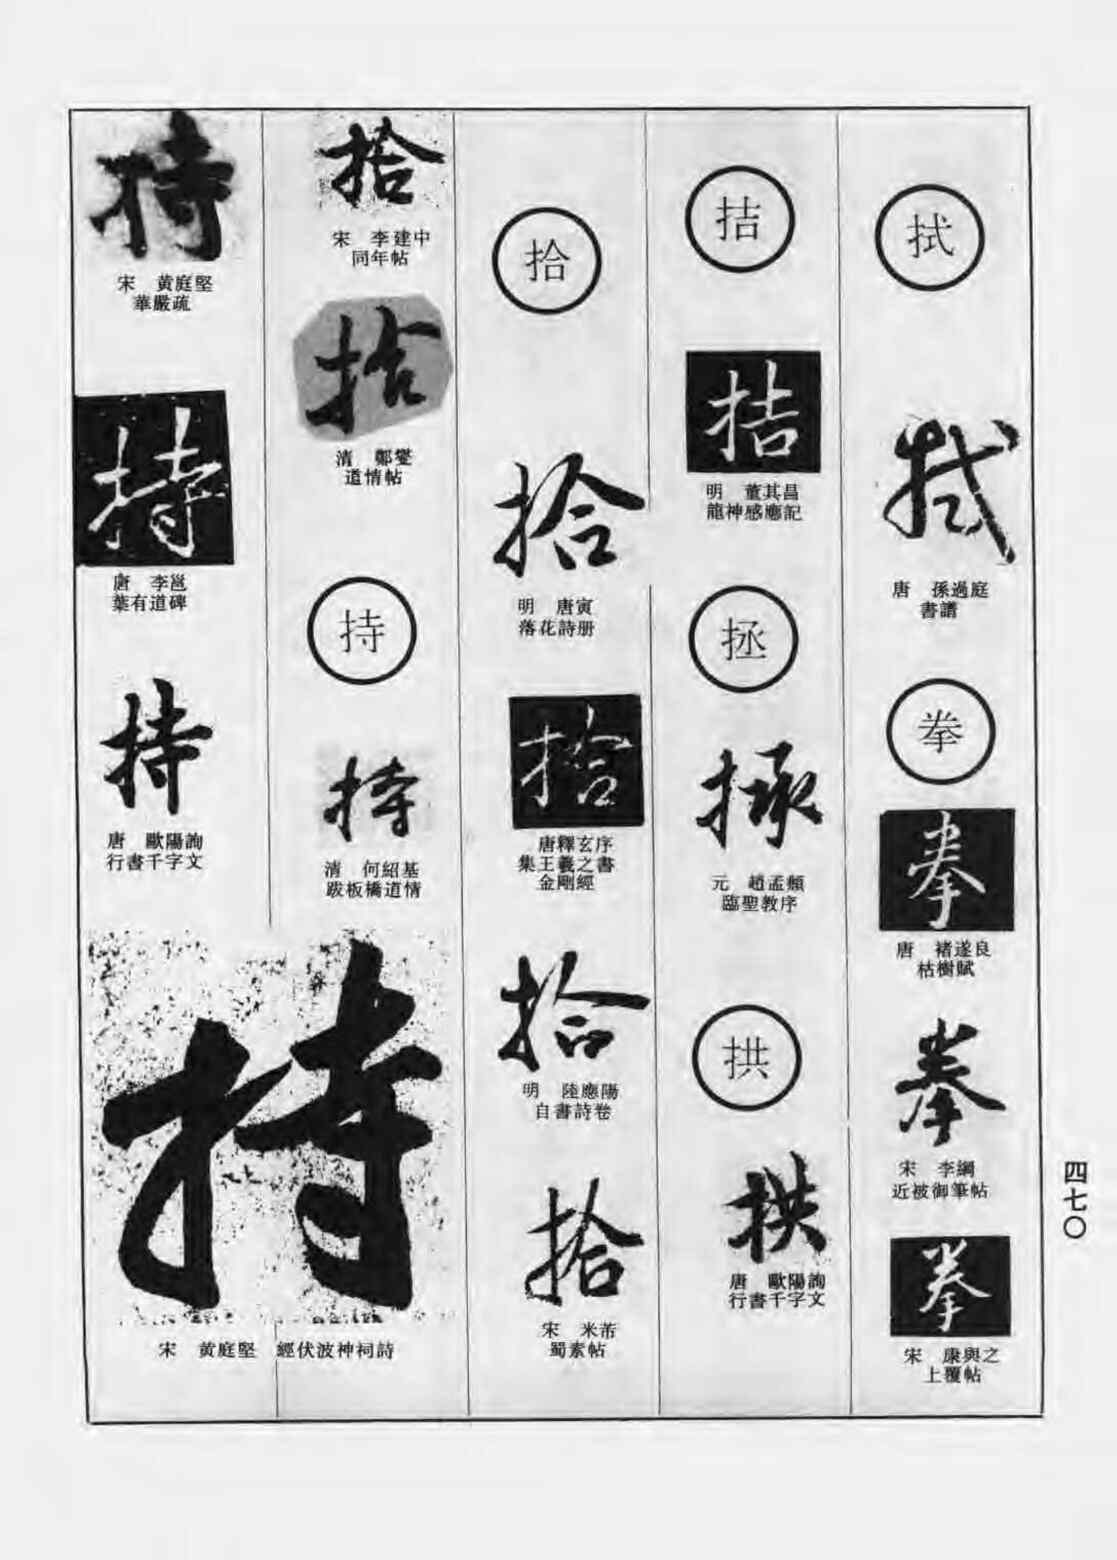 拭
拭
唐 孫過庭
書譜
拳
拳
唐 褚遂良
枯樹賦
拳
宋 李綱
近被御筆帖
拳
宋 康與之
上覆帖
拮
拮
明 董其昌
龍神感應記
拯
拯
元 趙孟頫
臨聖教序
拱
拱
唐 歐陽詢
行書千字文
拾
拾
明 唐寅
落花詩册
拾
唐釋玄序
集王羲之書
金剛經
拾
明 陸應陽
自書詩卷
拾
宋 米芾
蜀素帖
拾
宋 李建中
同年帖
拾
清 鄭燮
道情帖
持
持
清 何紹基
跋板橋道情
持
宋 黄庭堅
華嚴疏
持
唐 李邕
葉有道碑
持
唐 歐陽詢
行書千字文
持
宋 黄庭堅 經伏波神祠詩
四七〇